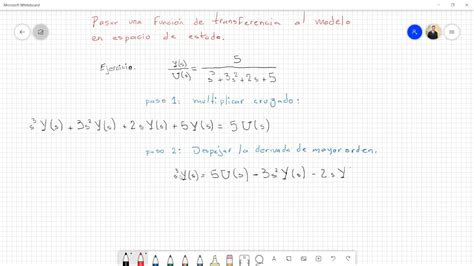 Microsoft Whiteboard
Pasar una función de transferencia al modelo
en espacio de estado.
Ejercicio. Y(s)/U(s) = 5/(s³+3s²+2s+5)
paso 1: multiplicar cruzado:
s³Y(s) + 3s²Y(s) + 2sY(s) + 5Y(s) = 5U(s)
paso 2: Despejar la derivada de mayor orden.
s³Y(s) = 5U(s) - 3s²Y(s) - 2sY